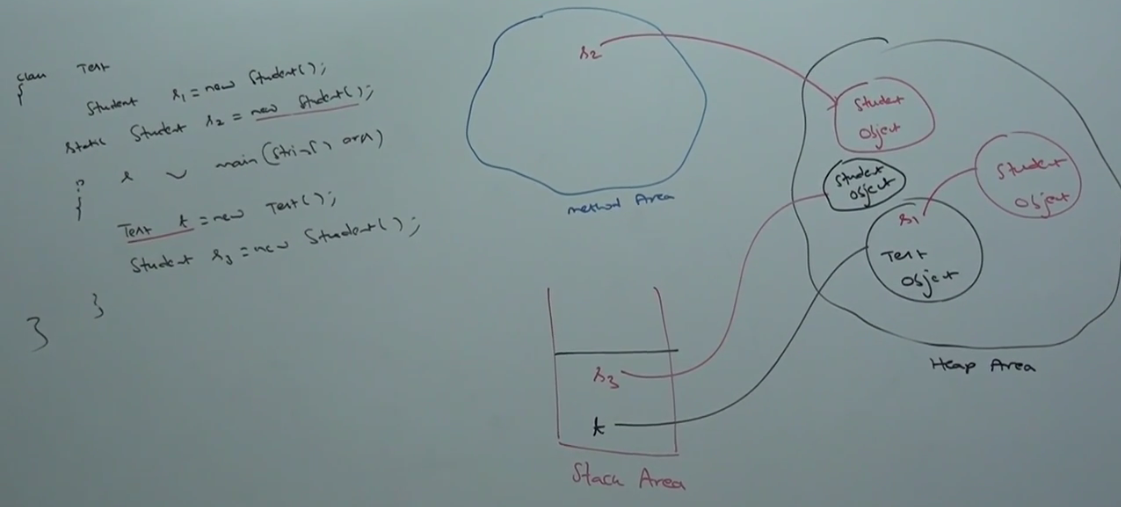 class Test
{
Student s1 = new Student();
static Student s2 = new Student();
p s v main(String[] args)
{
Test t = new Test();
Student s3 = new Student();
}
}
s2
method Area
Student
object
Student
object
Student
object
s1
Test
object
Heap Area
s3
t
Stack Area